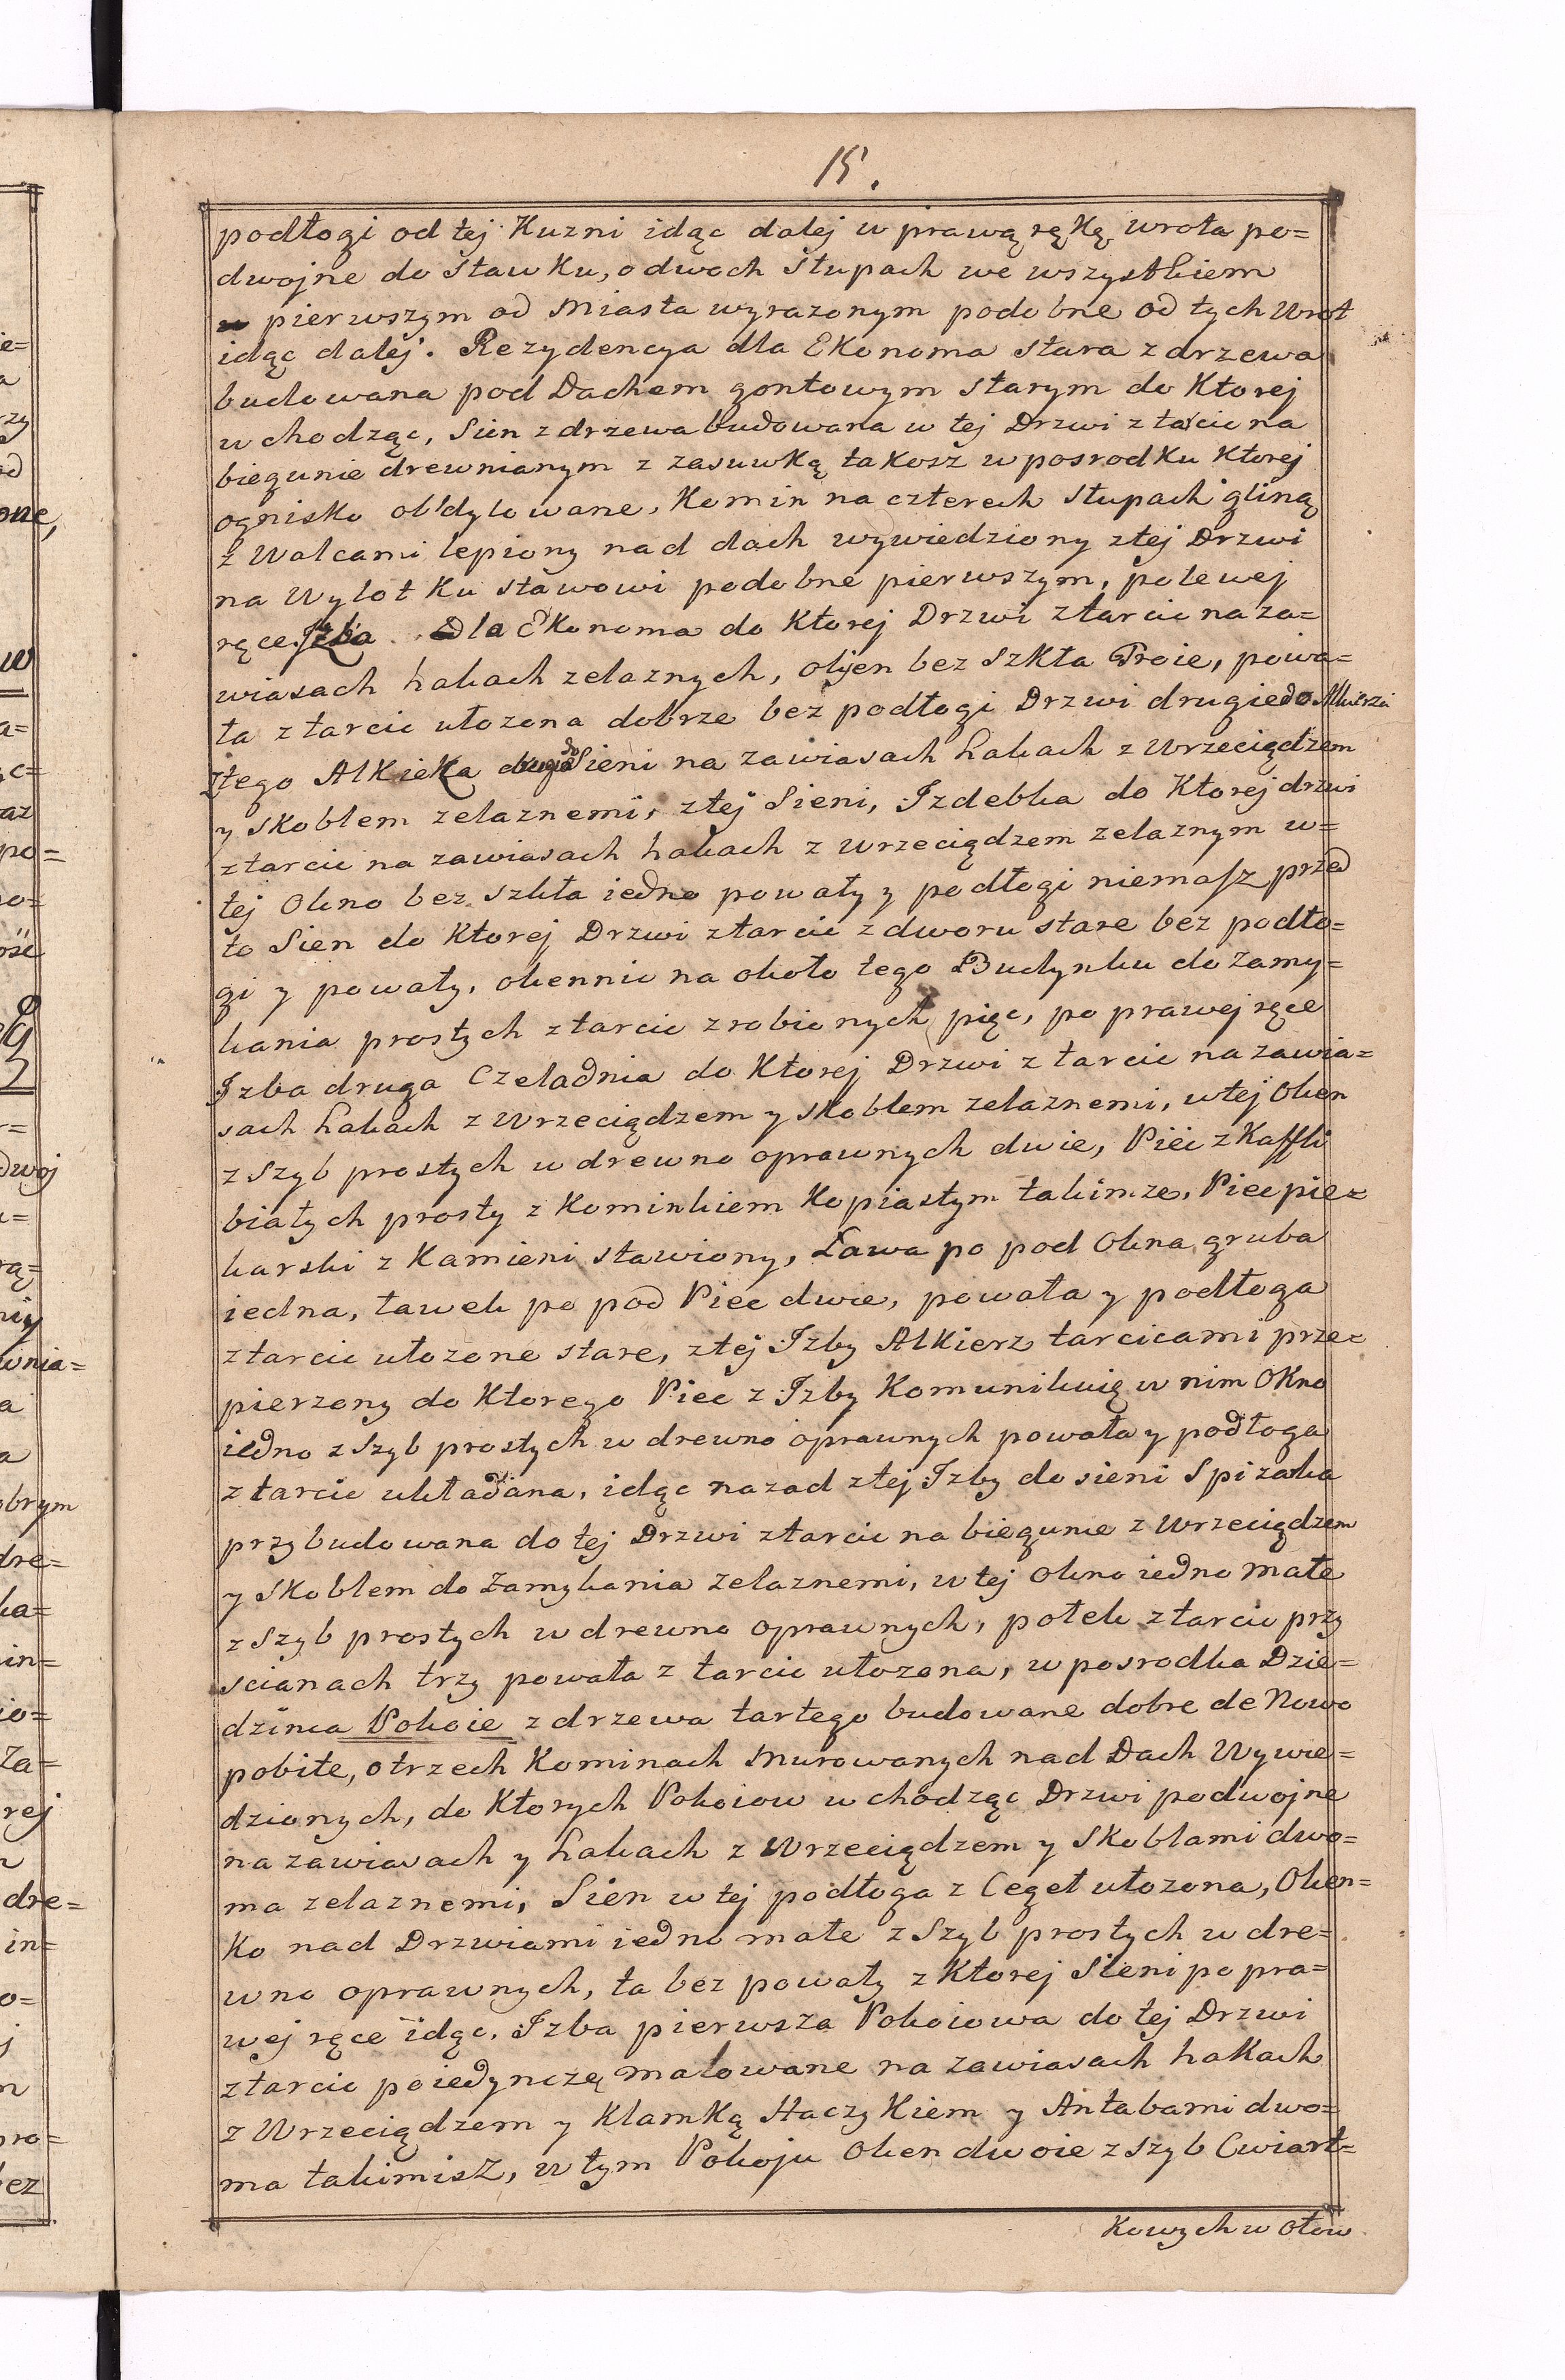 15.
podłogi od tej Kuzni idąc dalej w prawą rękę wrota po=
dwojne do stawku, o dwoch słupach we wszystkiem
pierwszym od Miasta wyrazonym podobne od tych Wrot
idąc dalej. Rezydencya dla Ekonoma stara z drzewa
budowana pod Dachem gontowym starym do Ktorej
wchodząc, Sien z drzewa budowana w tej Drzwi z tarcic na
biegunie drewnianym z zasuwką takosz w posrodku Ktorej
ognisko obdylowane, Komin na czterech słupach gliną
z Walcami lepiony nad dach wywiedziony z tej Drzwi
na Wylot Ku stawowi podobne pierwszym, po lewej
ręce Izba dla Ekonoma do Ktorej Drzwi z tarcic na za=
wiasach hakach zelaznych, okien bez szkła Troie, powa=
ła z tarcic ułozona dobrze bez podłogi Drzwi drugie do Alkierza
z tego Alkieża do Sieni na zawiasach hakach z wrzeciądzem
y skoblem zelaznemi, z tej Sieni, Izdebka do Ktorej drzwi
z tarcic na zawiasach hakach z wrzeciądzem zelaznym w=
tej Okno bez szkła iedno powały y podłogi niemasz przed
to Sien do Ktorej Drzwi z tarcic z dworu stare bez podło=
gi y powały, okennic na około tego Budynku do zamy=
kania prostych z tarcic zrobionych pięc, po prawej ręce
Izba druga Czeladnia do Ktorej Drzwi z tarcic na zawia=
sach hakach z Wrzeciądzem y skoblem zelaznemi, w tej Oken
z szyb prostych w drewno oprawnych dwie, Piec z Kaffli
białych prosty z Kominkiem Kopiastym takimze, Piec pie=
karski z Kamieni stawiony, Ława po pod Okna gruba
iedna, ławek po pod Piec dwie, powała y podłoga
z tarcic ułozone stare, z tej Izby Alkierz tarcicami prze=
pierzony do Ktorego Piec z Izby Komunikuię w nim Okno
iedno z szyb prostych w drewno oprawnych powała y podłoga
z tarcic układana, idąc nazad z tej Izby do sieni Spizarka
przybudowana do tej Drzwi z tarcic na biegunie z Wrzeciądzem
y skoblem do zamykania zelaznemi, w tej Okno iedno małe
z szyb prostych w drewno oprawnych, połek z tarcic przy
scianach trzy powała z tarcic ułozona, w posrodka Dzie=
dzinca Pokoie z drzewa tartego budowane dobre de Nowo
pobite, o trzech Kominach murowanych nad Dach Wywie=
dzionych, do Ktorych Pokoiow wchodząc Drzwi podwojne
na zawiasach y hakach z Wrzeciądzem y Skoblami dwo=
ma zelaznemi, Sien w tej podłoga z Cegeł ułozona, Oken=
Ko nad Drzwiami iedno małe z Szyb prostych w dre=
wno oprawnych, ta bez powały z Ktorej Sieni po pra=
wej ręce idąc, Izba pierwsza Pokoiowa do tej Drzwi
z tarcic poiedyncze malowane na zawiasach hakach
z Wrzeciądzem y Klamką Haczykiem y Antabami dwo=
ma takimisz, w tym Pokoju Oken dwoie z szyb Cwiart=
Kowych w Ołow